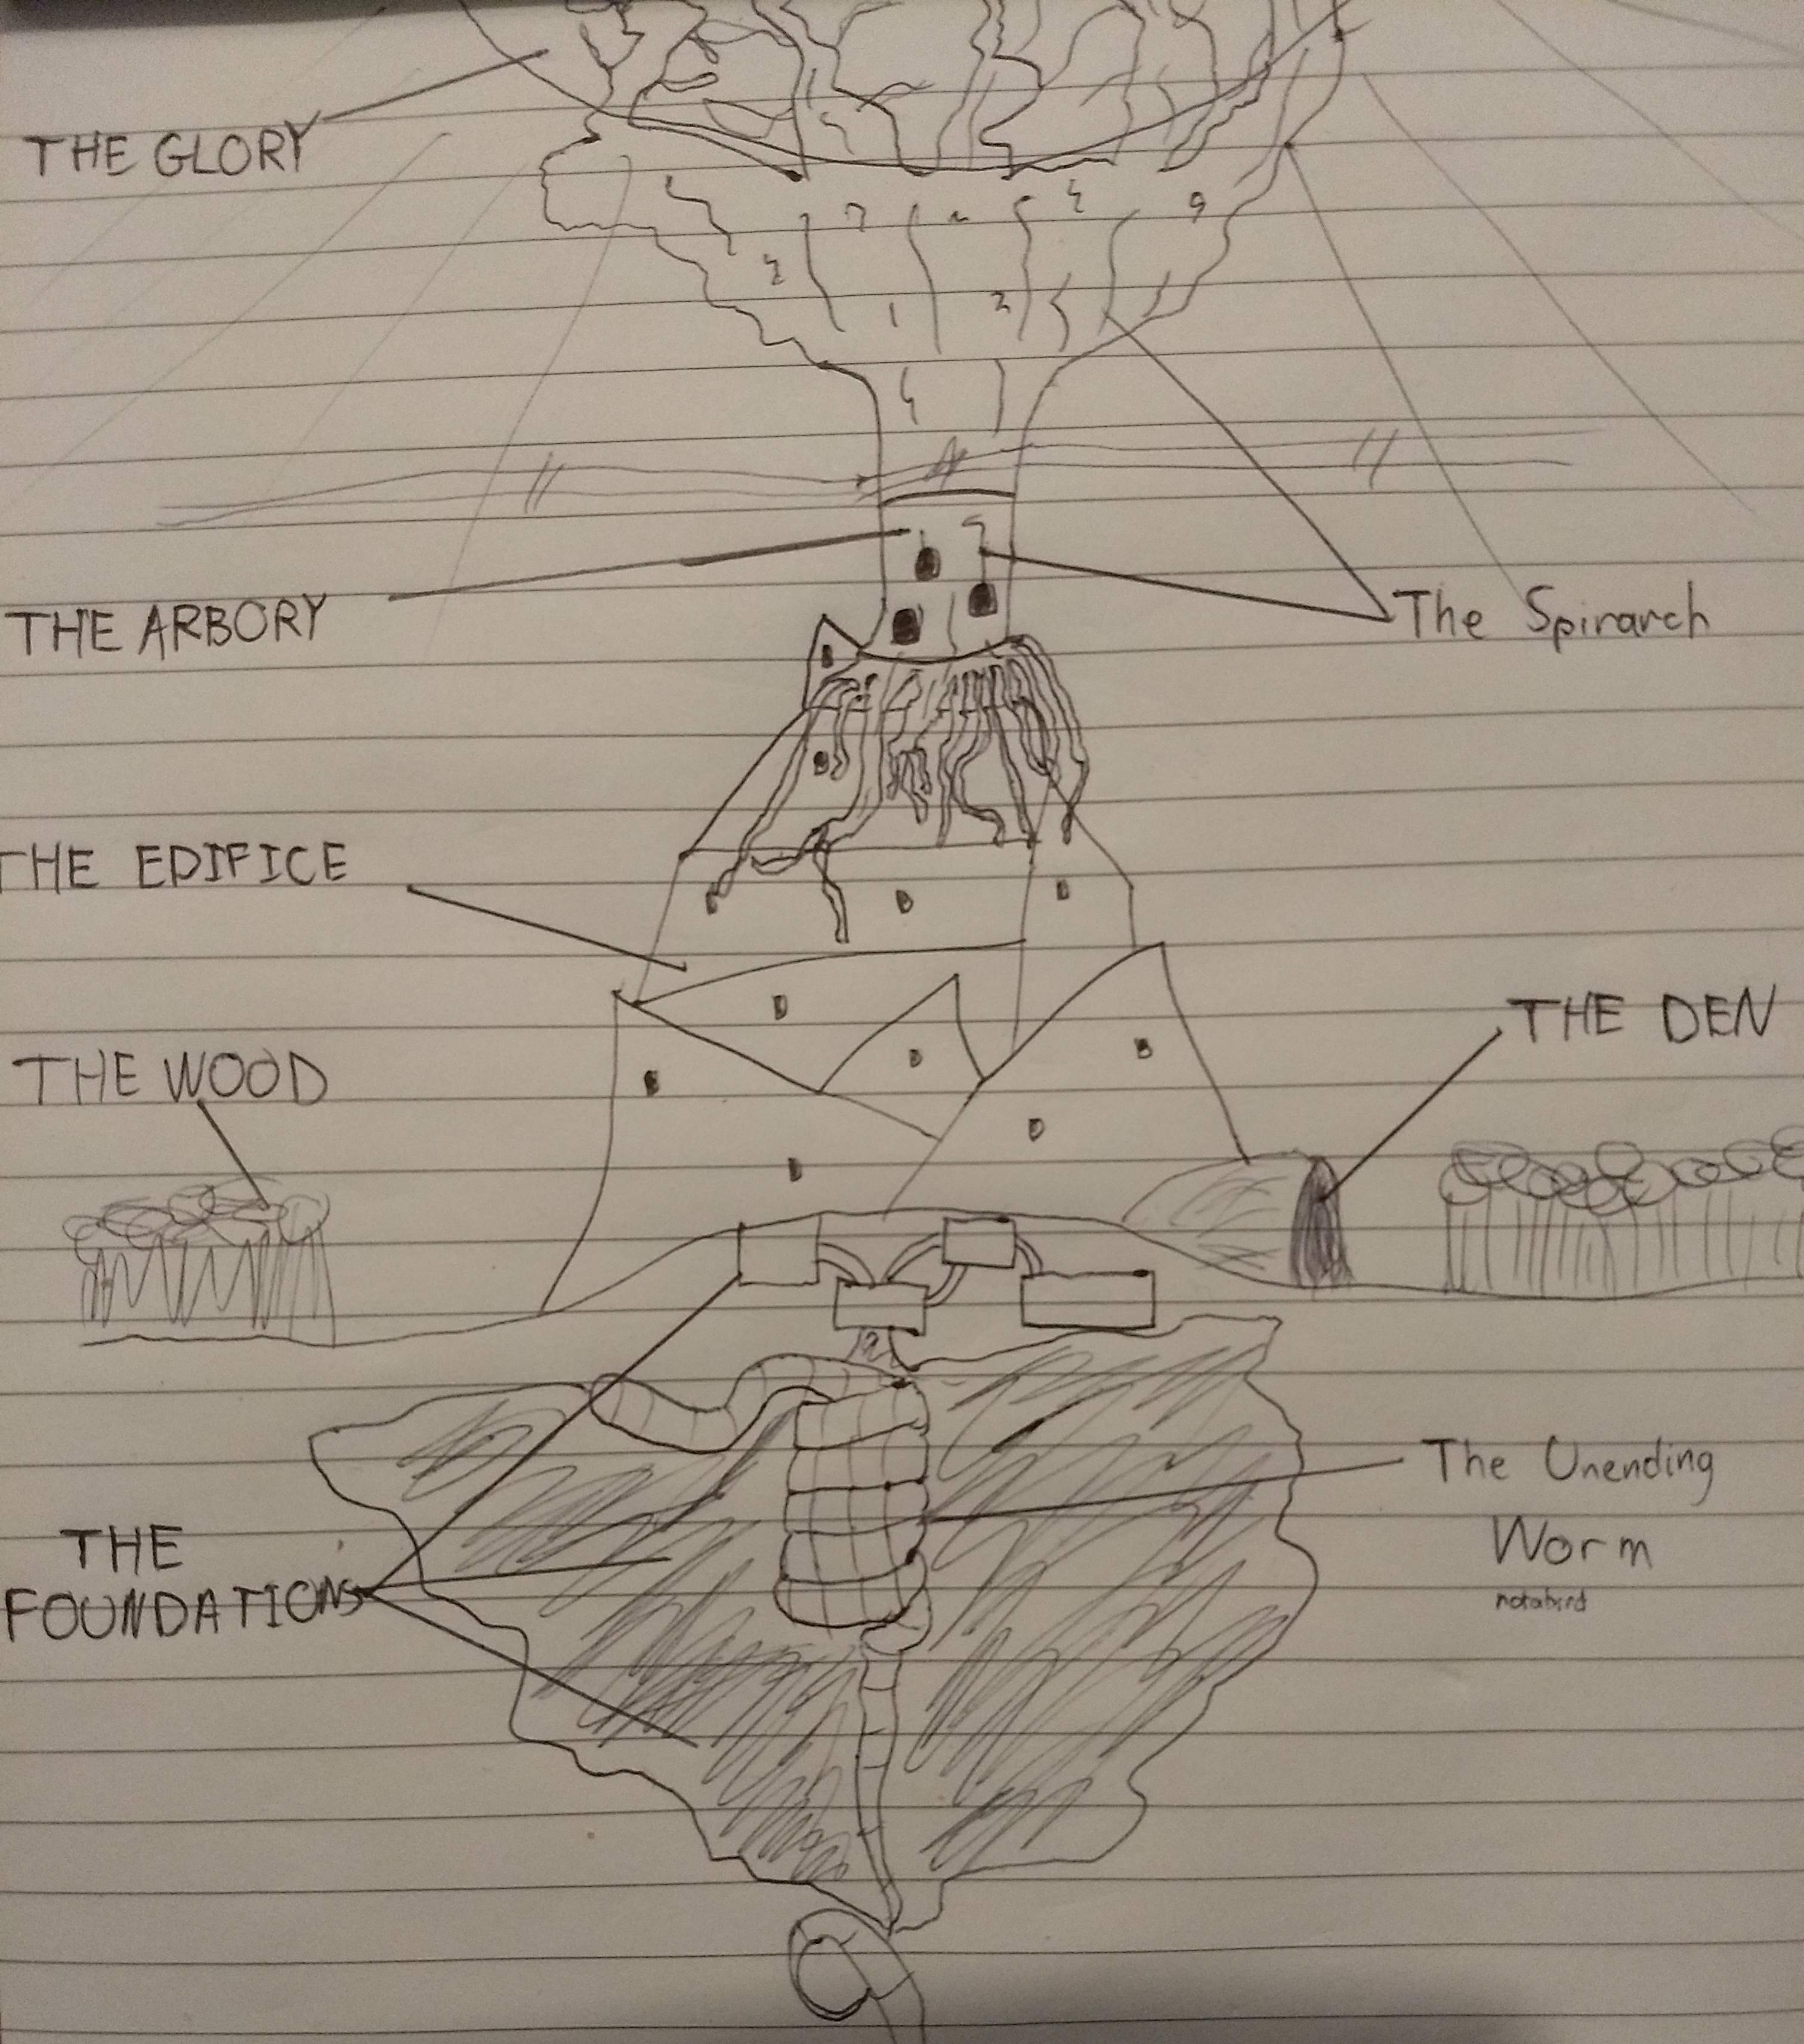 THE GLORY
THE ARBORY
The Spirarch
THE EDIFICE
THE DEN
THE WOOD
The Unending
Worm
notabird
THE
FOUNDATIONS